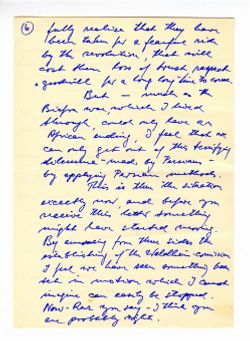 6
fully realize that they have
been taken for a fearful ride
by the revolution, that will
cost them tons of trust, respect
+ goodwill for a long long time to come.
But — much as the
Biafra war, which I lived
through, could only have an
African ending, I feel that we
can only get out of this terrifying
dilemma - made by Persians -
by applying Persian methods.
This is then the situation
exactly now, and before you
receive this letter something
might have started moving.
By from sides the
establishing of the Waldheim comission
I feel we have seen something been
set in motion which I cannot
imagine can easily be stopped.
Now - you say - I think you
are probably right.